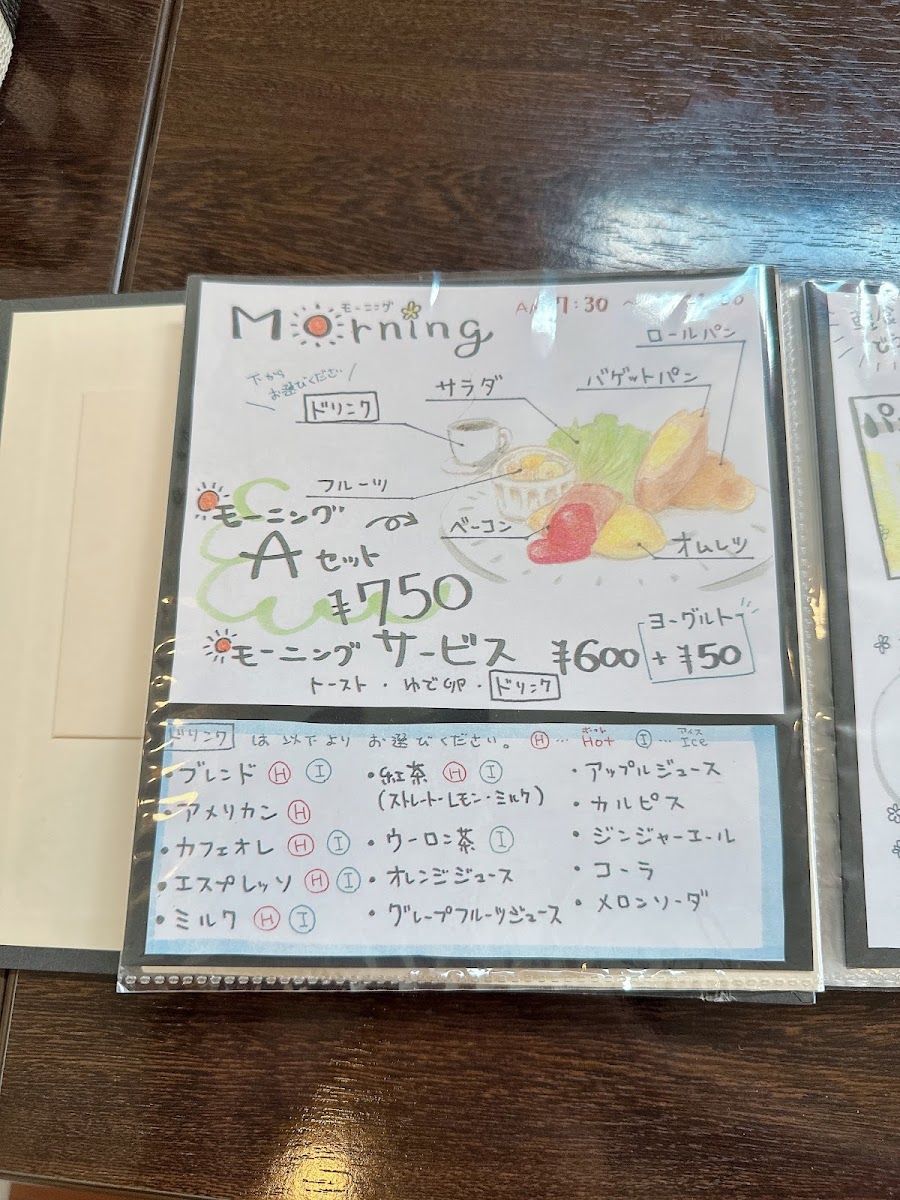 モーニング
Morning
AM 7:30 ~
下から
お選びください
ドリンク
サラダ
ロールパン
バゲットパン
フルーツ
ベーコン
オムレツ
モーニング
Aセット
¥750
モーニング サービス ¥600
ヨーグルト
+¥50
トースト・ゆで卵・ドリンク
ドリンク は 以下より お選びください。 Ⓗ… Hot Ⓘ… Ice
ホット アイス
・ブレンド Ⓗ Ⓘ
・アメリカン Ⓗ
・カフェオレ Ⓗ Ⓘ
・エスプレッソ Ⓗ Ⓘ
・ミルク Ⓗ Ⓘ
・紅茶 Ⓗ Ⓘ
(ストレート・レモン・ミルク)
・ウーロン茶 Ⓘ
・オレンジジュース
・グレープフルーツジュース
・アップルジュース
・カルピス
・ジンジャーエール
・コーラ
・メロンソーダ